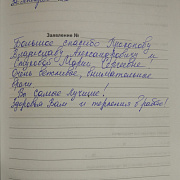 Заявление №
Большое спасибо Прохонову
Владиславу Александровичу и
Глуховой Марии Сергеевне
Очень отзывчивые, внимательные
врачи
Вы самые лучшие!
Здоровья Вам и терпения в работе!